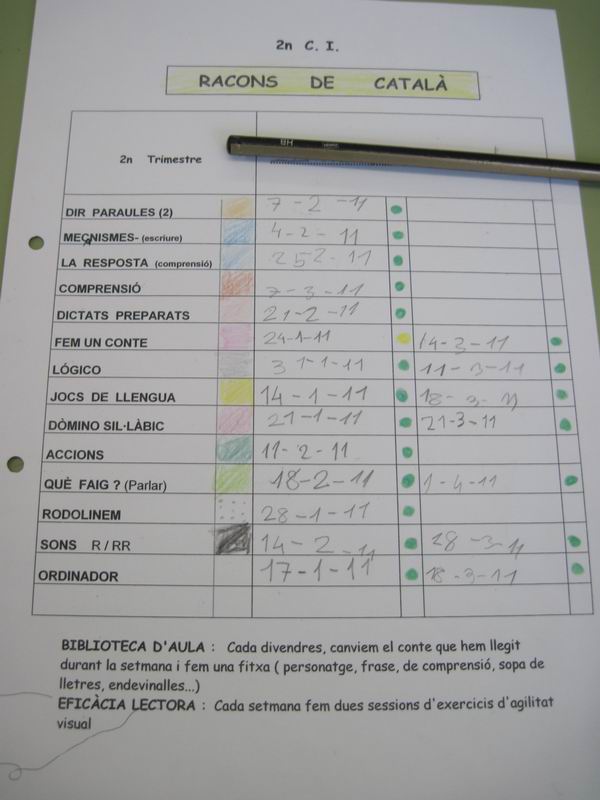 2n C. I.
RACONS DE CATALÀ
2n Trimestre
HB
DIR PARAULES (2) 7-2-11
MECNISMES- (escriure) 4-2-11
LA RESPOSTA (comprensió) 252-11
COMPRENSIÓ 7-3-11
DICTATS PREPARATS 21-2-11
FEM UN CONTE 24-1-11 14-3-11
LÓGICO 31-1-11 11-3-11
JOCS DE LLENGUA 14-1-11 18-3-11
DÒMINO SIL·LÀBIC 21-1-11 21-3-11
ACCIONS 11-2-11
QUÈ FAIG ? (Parlar) 18-2-11 1-4-11
RODOLINEM 28-1-11
SONS R / RR 14-2-11 28-3-11
ORDINADOR 17-1-11 18-3-11
BIBLIOTECA D'AULA : Cada divendres, canviem el conte que hem llegit
durant la setmana i fem una fitxa ( personatge, frase, de comprensió, sopa de
lletres, endevinalles...)
EFICÀCIA LECTORA : Cada setmana fem dues sessions d'exercicis d'agilitat
visual